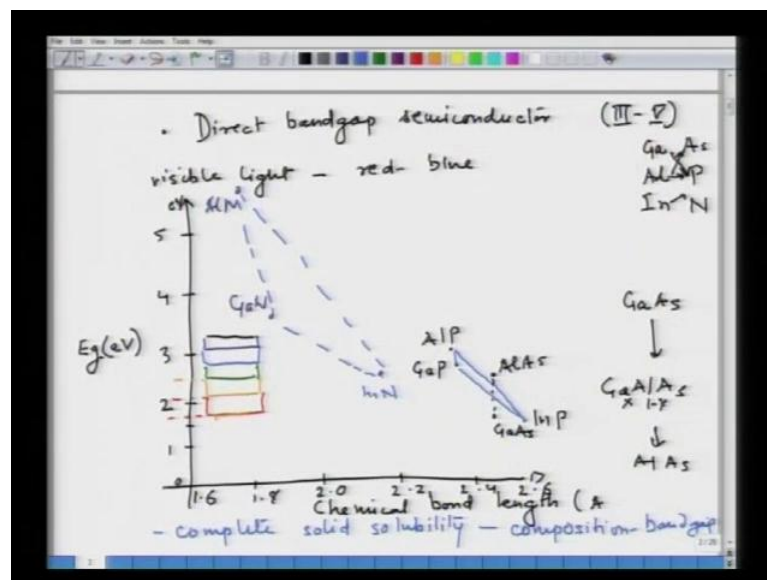 File Edit View Insert Actions Tools Help
B I
. Direct bandgap semiconductor (III-V)
Ga As
visible light - red-blue
Al P
In N
eV
AlN
5
4
GaN
GaAs
Eg(eV)
3
AlP
AlAs
GaP
GaAlAs
x 1-x
InN
2
InP
GaAs
AlAs
1
0
1.6 1.8 2.0 2.2 2.4 2.6
Chemical bond length (A
- complete solid solubility - composition-bandgap